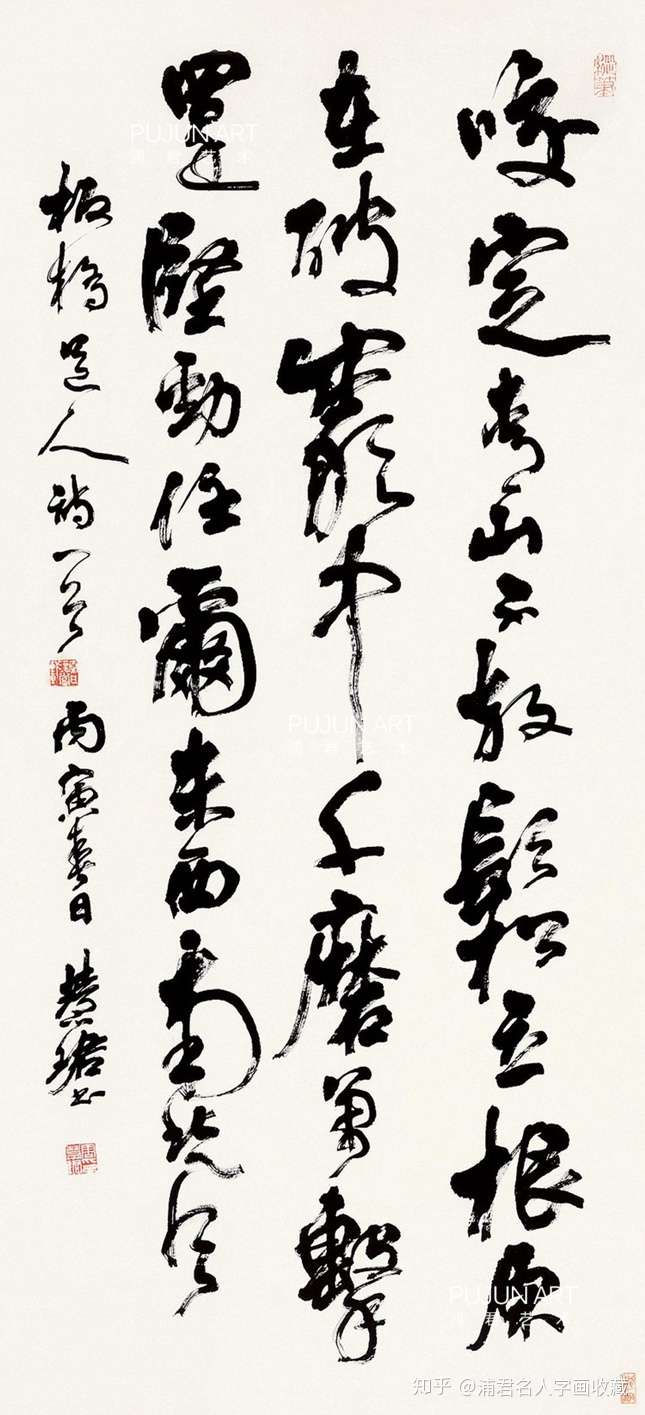 咬定青山不放鬆立根原
在破巖中千磨萬擊
還堅勁任爾東西南北風
板橋道人詩一首 丙寅春日 慧珺書
PUJUN ART
浦君艺术
PUJUN ART
浦君艺术
PUJUN ART
浦君艺术
知乎 @浦君名人字画收藏